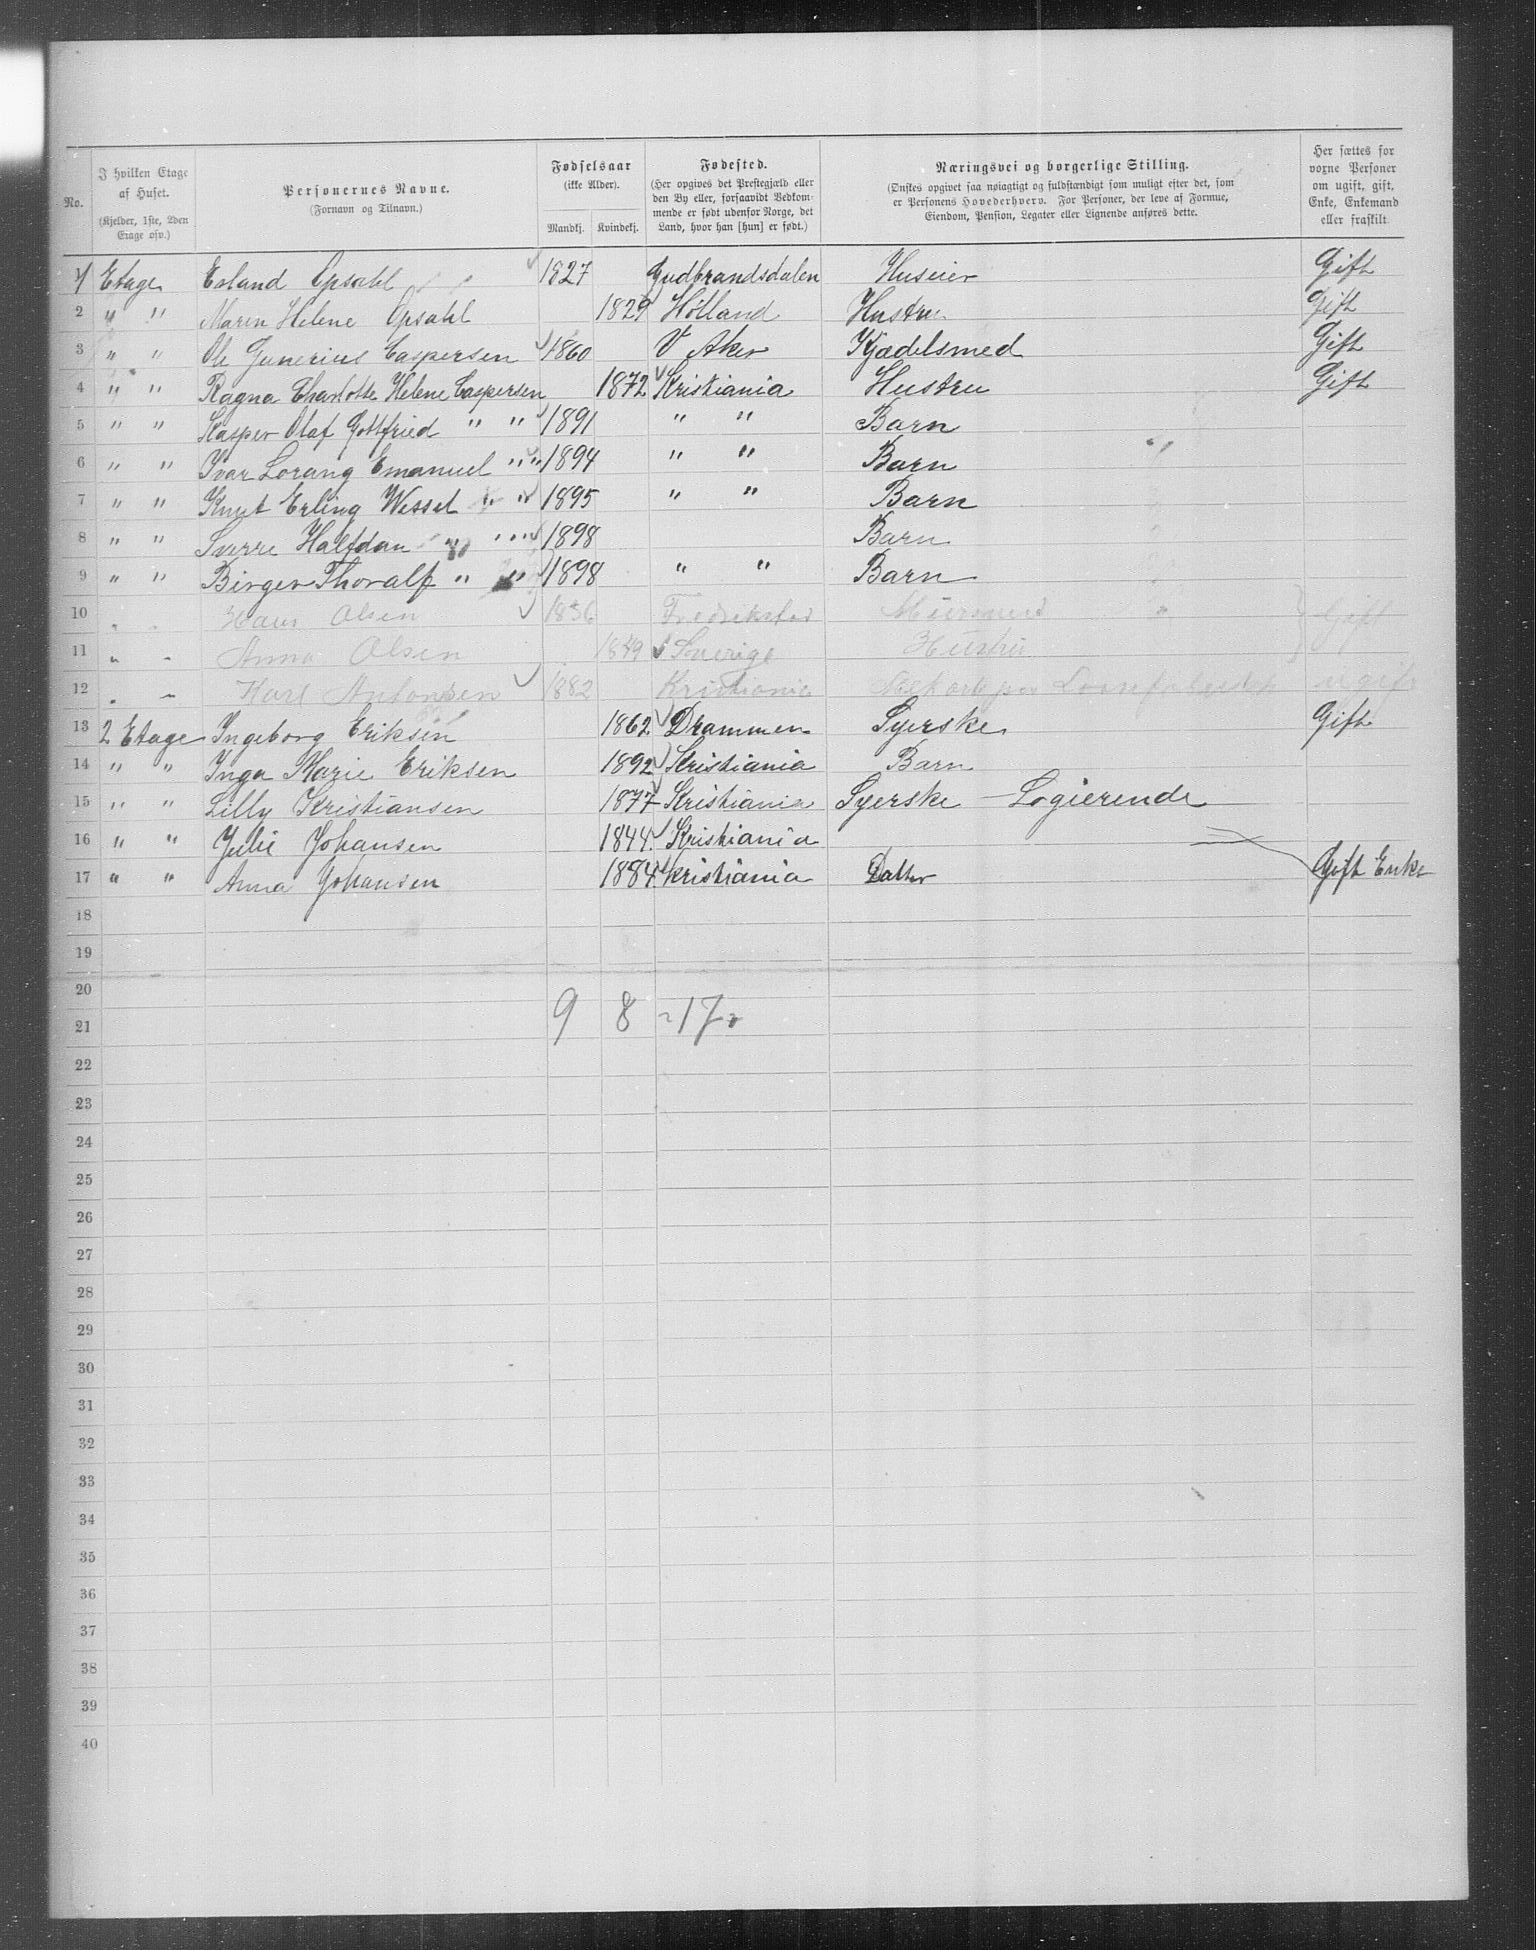 No. I hvilken Etage af Huset. (Kjelder, 1ste, 2den Etage osv.) Personernes Navne. (Fornavn og Tilnavn.) Fødselsaar (ikke Alder). Mandkj. Kvindekj. Fødested. (Her opgives det Prestegjæld eller den By eller, forsaavidt Vedkommende er født udenfor Norge, det Land, hvor han [hun] er født.) Næringsvei og borgerlige Stilling. (Ønskes opgivet saa nøiagtigt og fuldstændigt som muligt efter det, som er Personens Hovederhverv. For Personer, der leve af Formue, Eiendom, Pension, Legater eller Lignende anføres dette. Her sættes for voxne Personer om ugift, gift, Enke, Enkemand eller fraskilt.
1 Etage Erland Opsahl 1827 Gudbrandsdalen Huseier Gift
2 " " Maren Helene Opsahl 1829 Hølland Hustru Gift
3 " " Ole Gunerius Caspersen 1860 V Aker Kjædelsmed Gift
4 " " Ragna Charlotte Helene Caspersen 1872 Kristiania Hustru Gift
5 " " Kasper Olaf Gottfried " " 1891 " " Barn
6 " " Ivar Lorang Emanuel " " 1894 " " Barn
7 " " Knut Erling Wessel " " 1895 " " Barn
8 " " Sverre Halfdan " " 1898 Barn
9 " " Birger Thoralf " " 1898 " " Barn
10 " " Hans Olsen 1836 Fredrikstad Gift
11 " " Anna Olsen 1849 Sverige Hustru
12 " " Karl Antonsen 1882 Kristiania ugift
13 2 Etage Ingeborg Eriksen 1862 Drammen Syerske Gift
14 " " Inga Marie Eriksen 1892 Kristiania Barn
15 " " Lilly Kristiansen 1877 Kristiania Syerske - Logierende
16 " " Julie Johansen 1844 Kristiania
17 " " Anna Johansen 1884 Kristiania Datter Gift Enke
18
19
20
9 8 = 17
21
22
23
24
25
26
27
28
29
30
31
32
33
34
35
36
37
38
39
40